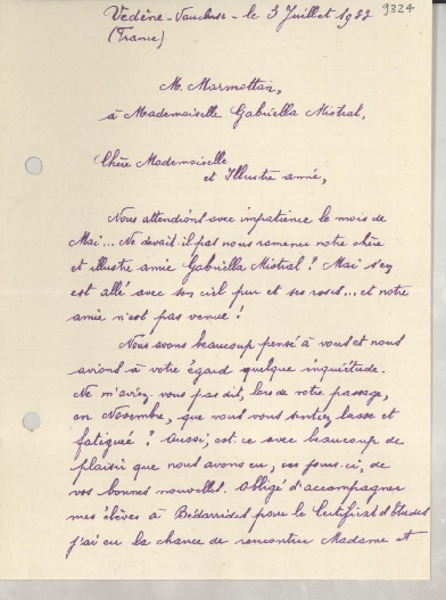 Védène - Vaucluse - le 3 Juillet 1933 9324
(France)
M. Marmottan,
à Mademoiselle Gabriella Mistral,
Chère Mademoiselle
et Illustre amie,
Nous attendions avec impatience le mois de
Mai... Ne devait-il pas nous ramener notre chère
et illustre amie Gabriella Mistral ? Mai s'en
est allé avec son ciel pur et ses roses... et notre
amie n'est pas venue !
Nous avons beaucoup pensé à vous et nous
avions à votre égard quelque inquiétude.
Ne m'aviez-vous pas dit, lors de votre passage,
en Novembre, que vous vous sentiez lasse et
fatiguée ? Aussi, est-ce avec beaucoup de
plaisir que nous avons eu, ces jours-ci, de
vos bonnes nouvelles. Obligé d'accompagner
mes élèves à Bédarrides pour le Certificat d'Etudes
j'ai eu la chance de rencontrer Madame et